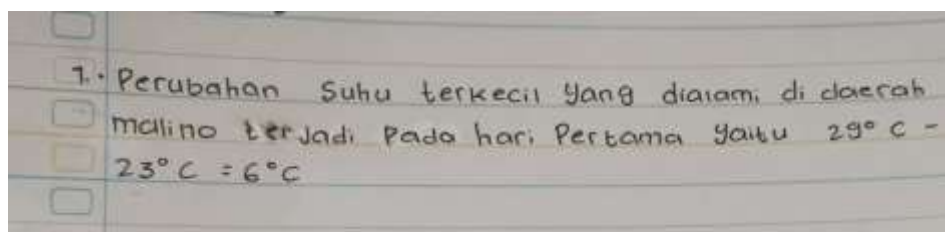 1. Perubahan Suhu terkecil yang dialami di daerah
malino terjadi Pada hari Pertama yaitu 29° C -
23° C = 6°C